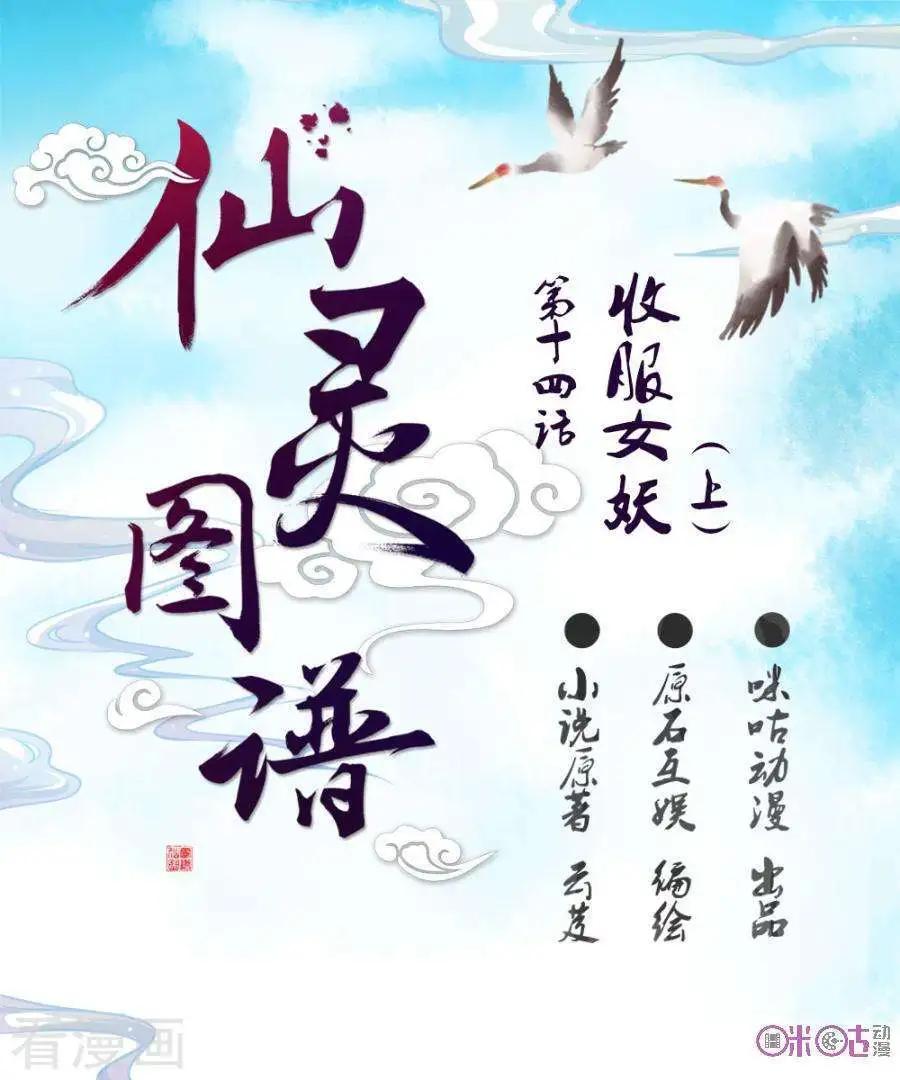 仙灵图谱
收服女妖
（上）
第十四话
咪咕动漫 出品
原石互娱 编绘
小说原著 云芨
看漫画
咪咕动漫